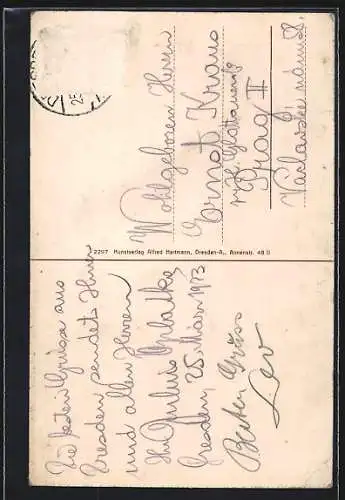 Die besten Grüsse aus
Dresden sendet Ihnen
und allen Herren
Ihr
Dresden, 25. März 1913
Besten Gruss
Leo
2297 Kunstverlag Alfred Hartmann, Dresden-A., Annenstr. 48 II
Wohlgeboren Herrn
Ernst Kraus
Prag II